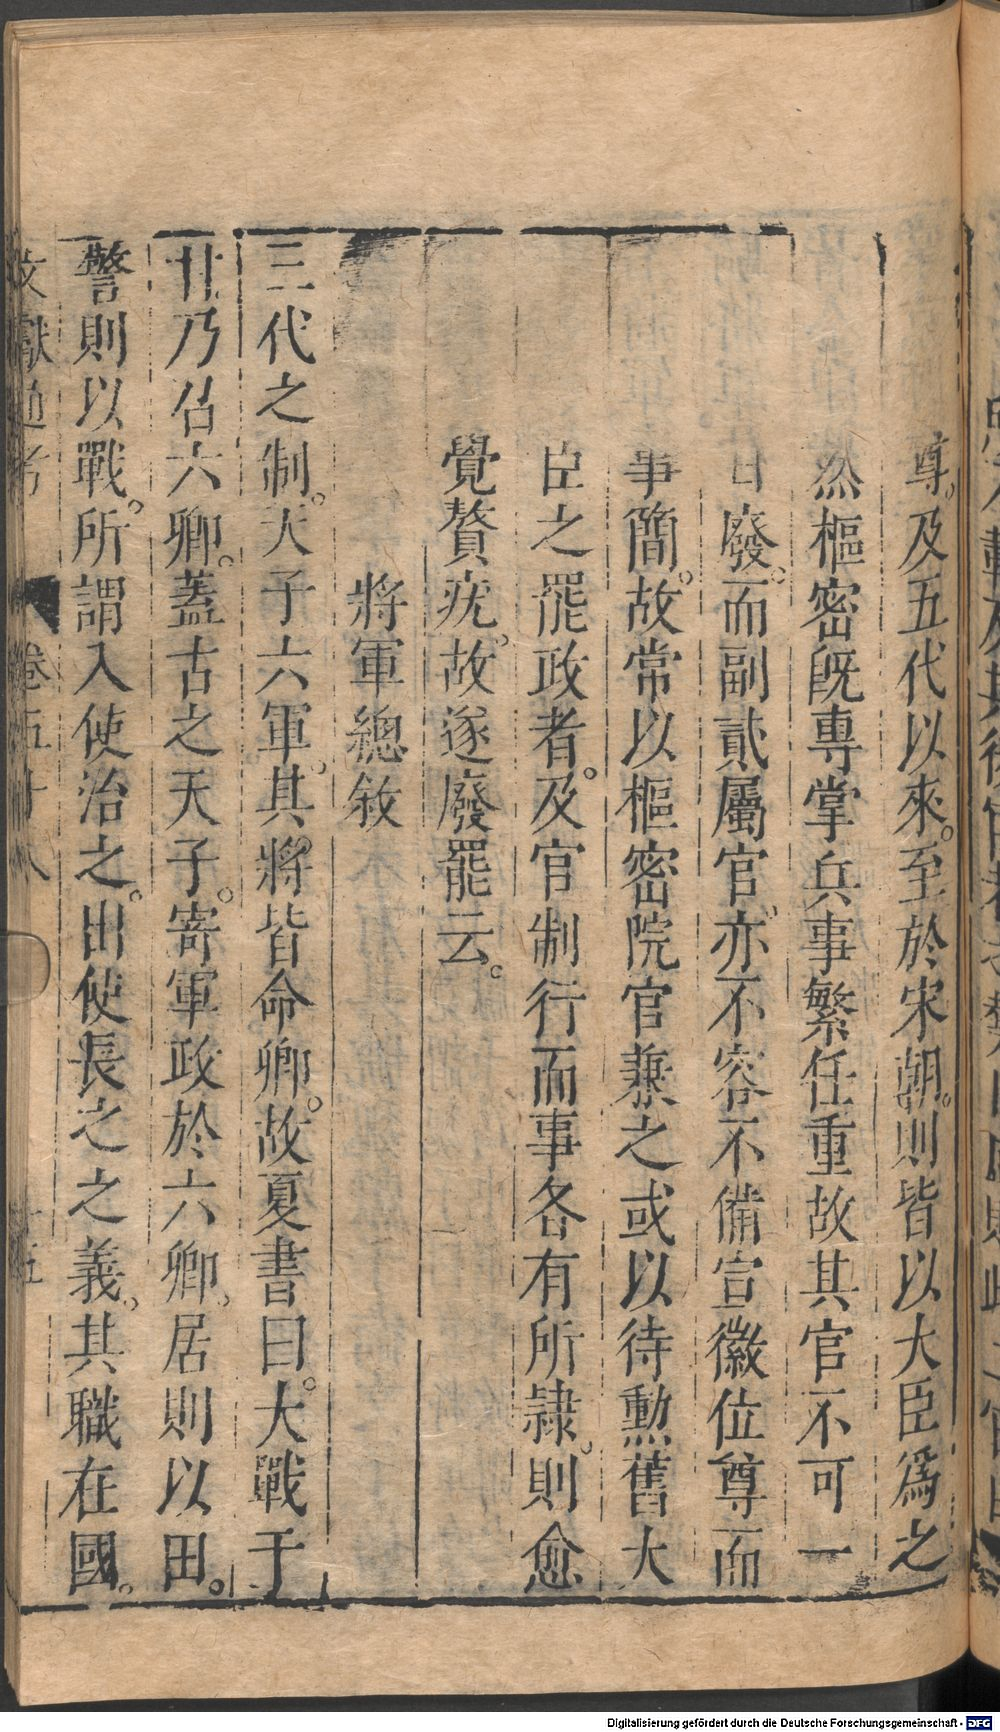 尊。及五代以來。至於宋朝。則皆以大臣爲之
然樞密旣專掌兵事繁任重故其官不可一
日廢。而副貳屬官。亦不容不備宣徽位尊而
事簡。故常以樞密院官兼之或以待勲舊大
臣之罷政者。及官制行而事各有所隷。則愈
覺贅疣。故遂廢罷云。
將軍總敘
三代之制。天子六軍。其將皆命卿。故夏書曰。大戰于
甘乃召六卿。蓋古之天子。寄軍政於六卿。居則以田。
警則以戰。所謂入使治之。出使長之之義。其職在國。
文獻通考 卷五十八 十五
Digitalisierung gefördert durch die Deutsche Forschungsgemeinschaft - DFG